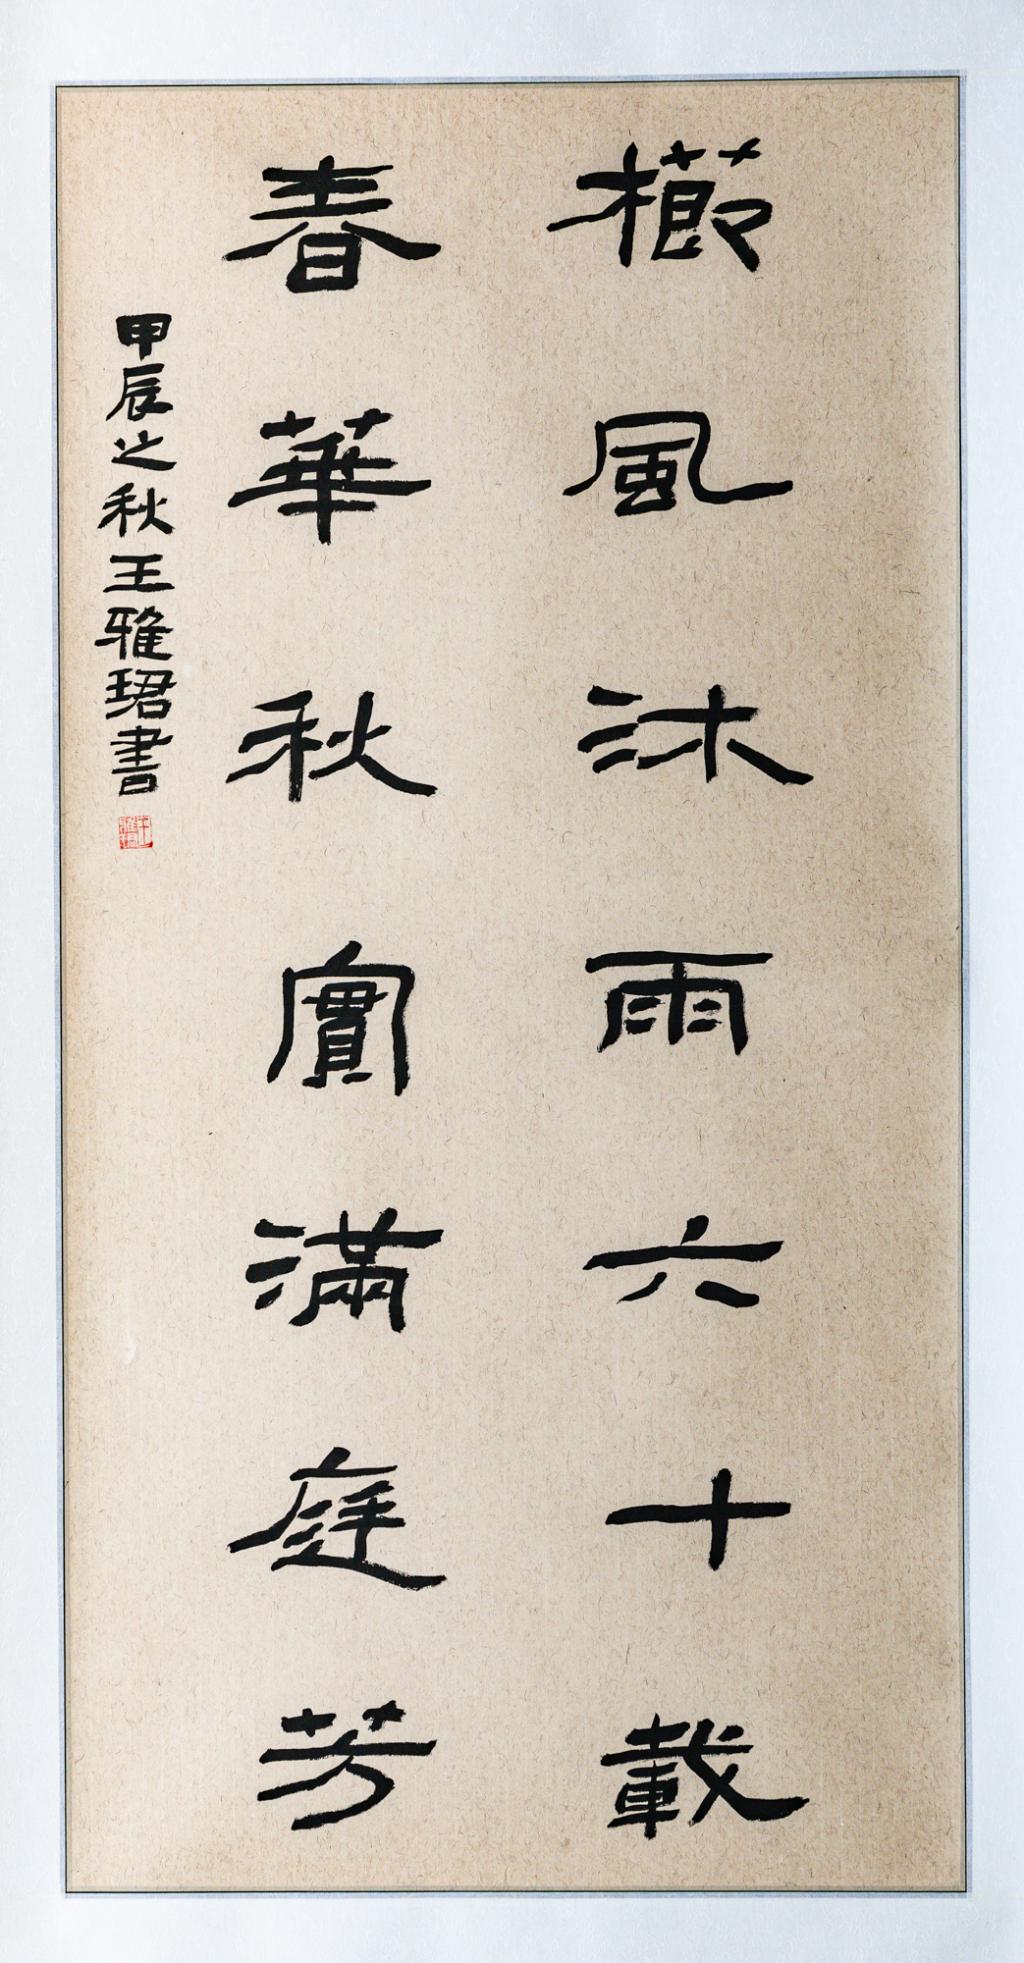 櫛風沐雨六十載
春華秋實滿庭芳
甲辰之秋王雅珺書